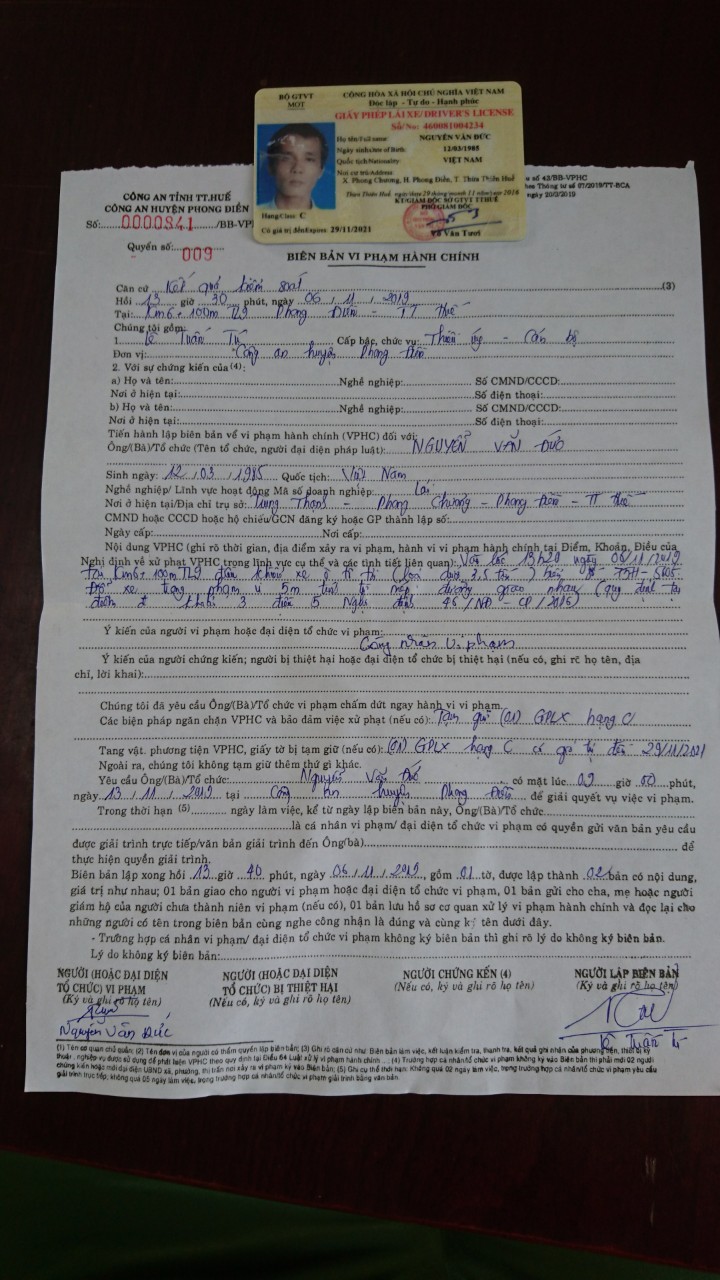 BỘ GTVT
MOT
CỘNG HÒA XÃ HỘI CHỦ NGHĨA VIỆT NAM
Độc lập - Tự do - Hạnh phúc
GIẤY PHÉP LÁI XE/DRIVER'S LICENSE
Số/No: 460081004234
Họ tên/Full name: NGUYỄN VĂN ĐỨC
Ngày sinh/Date of Birth: 12/03/1985
Quốc tịch/Nationality: VIỆT NAM
Nơi cư trú/Address:
X. Phong Chương, H. Phong Điền, T. Thừa Thiên Huế
Thừa Thiên Huế, ngày/date 29 tháng/month 11 năm/year 2016
KT/GIÁM ĐỐC SỞ GTVT TTHUẾ
PHÓ GIÁM ĐỐC
Hạng/Class: C
Có giá trị đến/Expires 29/11/2021
Văn Tươi
số 43/BB-VPHC
theo Thông tư số 07/2019/TT-BCA
ngày 20/3/2019
CÔNG AN TỈNH TT.HUẾ
CÔNG AN HUYỆN PHONG ĐIỀN
Số: 0000841 /BB-VP
Quyển số: 009
BIÊN BẢN VI PHẠM HÀNH CHÍNH
Căn cứ Kết quả kiểm soát (3)
Hồi 13 giờ 30 phút, ngày 06, 11, 2019
Tại: Km6+100m TL9 Phong Điền - TT Huế
Chúng tôi gồm:
1. Lê Tuấn Tú Cấp bậc, chức vụ: Thiếu úy - Cán bộ
Đơn vị: Công an huyện Phong Điền
2. Với sự chứng kiến của (4):
a) Họ và tên: Nghề nghiệp: Số CMND/CCCD:
Nơi ở hiện tại: Số điện thoại:
b) Họ và tên: Nghề nghiệp: Số CMND/CCCD:
Nơi ở hiện tại: Số điện thoại:
Tiến hành lập biên bản về vi phạm hành chính (VPHC) đối với:
Ông/(Bà)/Tổ chức (Tên tổ chức, người đại diện pháp luật): NGUYỄN VĂN ĐỨC
Sinh ngày: 12, 03, 1985 Quốc tịch: Việt Nam
Nghề nghiệp/ Lĩnh vực hoạt động Mã số doanh nghiệp: Lái
Nơi ở hiện tại/Địa chỉ trụ sở: Trung Thạnh - Phong Chương - Phong Điền - TT Huế
CMND hoặc CCCD hoặc hộ chiếu/GCN đăng ký hoặc GP thành lập số:
Ngày cấp: Nơi cấp:
Nội dung VPHC (ghi rõ thời gian, địa điểm xảy ra vi phạm, hành vi vi phạm hành chính tại Điểm, Khoản, Điều của
Nghị định về xử phạt VPHC trong lĩnh vực cụ thể và các tình tiết liên quan): Vào lúc 13h20 ngày 06/11/2019
tại Km6+100m TL9 điều khiển xe ô tô tải (loại dưới 3,5 tấn) biển số 75H-
Đỗ xe trong phạm vi 5m tính từ mép đường giao nhau (quy định tại
điểm đ khoản 3 điều 5 Nghị định 46/NĐ-CP/2016)
Ý kiến của người vi phạm hoặc đại diện tổ chức vi phạm:
Công nhận vi phạm
Ý kiến của người chứng kiến; người bị thiệt hại hoặc đại diện tổ chức bị thiệt hại (nếu có, ghi rõ họ tên, địa
chỉ, lời khai):
Chúng tôi đã yêu cầu Ông/(Bà)/Tổ chức vi phạm chấm dứt ngay hành vi vi phạm.
Các biện pháp ngăn chặn VPHC và bảo đảm việc xử phạt (nếu có): Tạm giữ (01) GPLX hạng C
Tang vật, phương tiện VPHC, giấy tờ bị tạm giữ (nếu có): (01) GPLX hạng C có giá trị đến 29/11/2021
Ngoài ra, chúng tôi không tạm giữ thêm thứ gì khác.
Yêu cầu Ông/(Bà)/Tổ chức: Nguyễn Văn Đức có mặt lúc 09 giờ 00 phút,
ngày 13, 11, 2019 tại Công an huyện Phong Điền để giải quyết vụ việc vi phạm.
Trong thời hạn (5) ngày làm việc, kể từ ngày lập biên bản này, Ông/(Bà)/Tổ chức
là cá nhân vi phạm/ đại diện tổ chức vi phạm có quyền gửi văn bản yêu cầu
được giải trình trực tiếp/văn bản giải trình đến Ông(bà) để
thực hiện quyền giải trình.
Biên bản lập xong hồi 13 giờ 40 phút, ngày 06, 11, 2019, gồm 01 tờ, được lập thành 02 bản có nội dung,
giá trị như nhau; 01 bản giao cho người vi phạm hoặc đại diện tổ chức vi phạm, 01 bản gửi cho cha, mẹ hoặc người
giám hộ của người chưa thành niên vi phạm (nếu có), 01 bản lưu hồ sơ cơ quan xử lý vi phạm hành chính và đọc lại cho
những người có tên trong biên bản cùng nghe công nhận là đúng và cùng ký tên dưới đây.
- Trường hợp cá nhân vi phạm/ đại diện tổ chức vi phạm không ký biên bản thì ghi rõ lý do không ký biên bản.
Lý do không ký biên bản:
NGƯỜI (HOẶC ĐẠI DIỆN
TỔ CHỨC) VI PHẠM
(Ký và ghi rõ họ tên)
Nguyễn Văn Đức
NGƯỜI (HOẶC ĐẠI DIỆN
TỔ CHỨC) BỊ THIỆT HẠI
(Nếu có, ký và ghi rõ họ tên)
NGƯỜI CHỨNG KẾN (4)
(Nếu có, ký và ghi rõ họ tên)
NGƯỜI LẬP BIÊN BẢN
(Ký và ghi rõ họ tên)
Lê Tuấn Tú
(1) Tên cơ quan chủ quản; (2) Tên đơn vị của người có thẩm quyền lập biên bản; (3) Ghi rõ căn cứ như: Biên bản làm việc, kết luận kiểm tra, thanh tra, kết quả ghi nhận của phương tiện, thiết bị kỹ
thuật, nghiệp vụ được sử dụng để phát hiện VPHC theo quy định tại Điều 64 Luật xử lý vi phạm hành chính ... ; (4) Trường hợp cá nhân/tổ chức vi phạm không ký vào Biên bản thì phải mời 02 người
chứng kiến hoặc mời đại diện UBND xã, phường, thị trấn nơi xảy ra vi phạm ký vào Biên bản; (5) Ghi cụ thể thời hạn: Không quá 02 ngày làm việc, trong trường hợp cá nhân/tổ chức vi phạm yêu cầu
giải trình trực tiếp; không quá 05 ngày làm việc, trong trường hợp cá nhân/tổ chức vi phạm giải trình bằng văn bản.